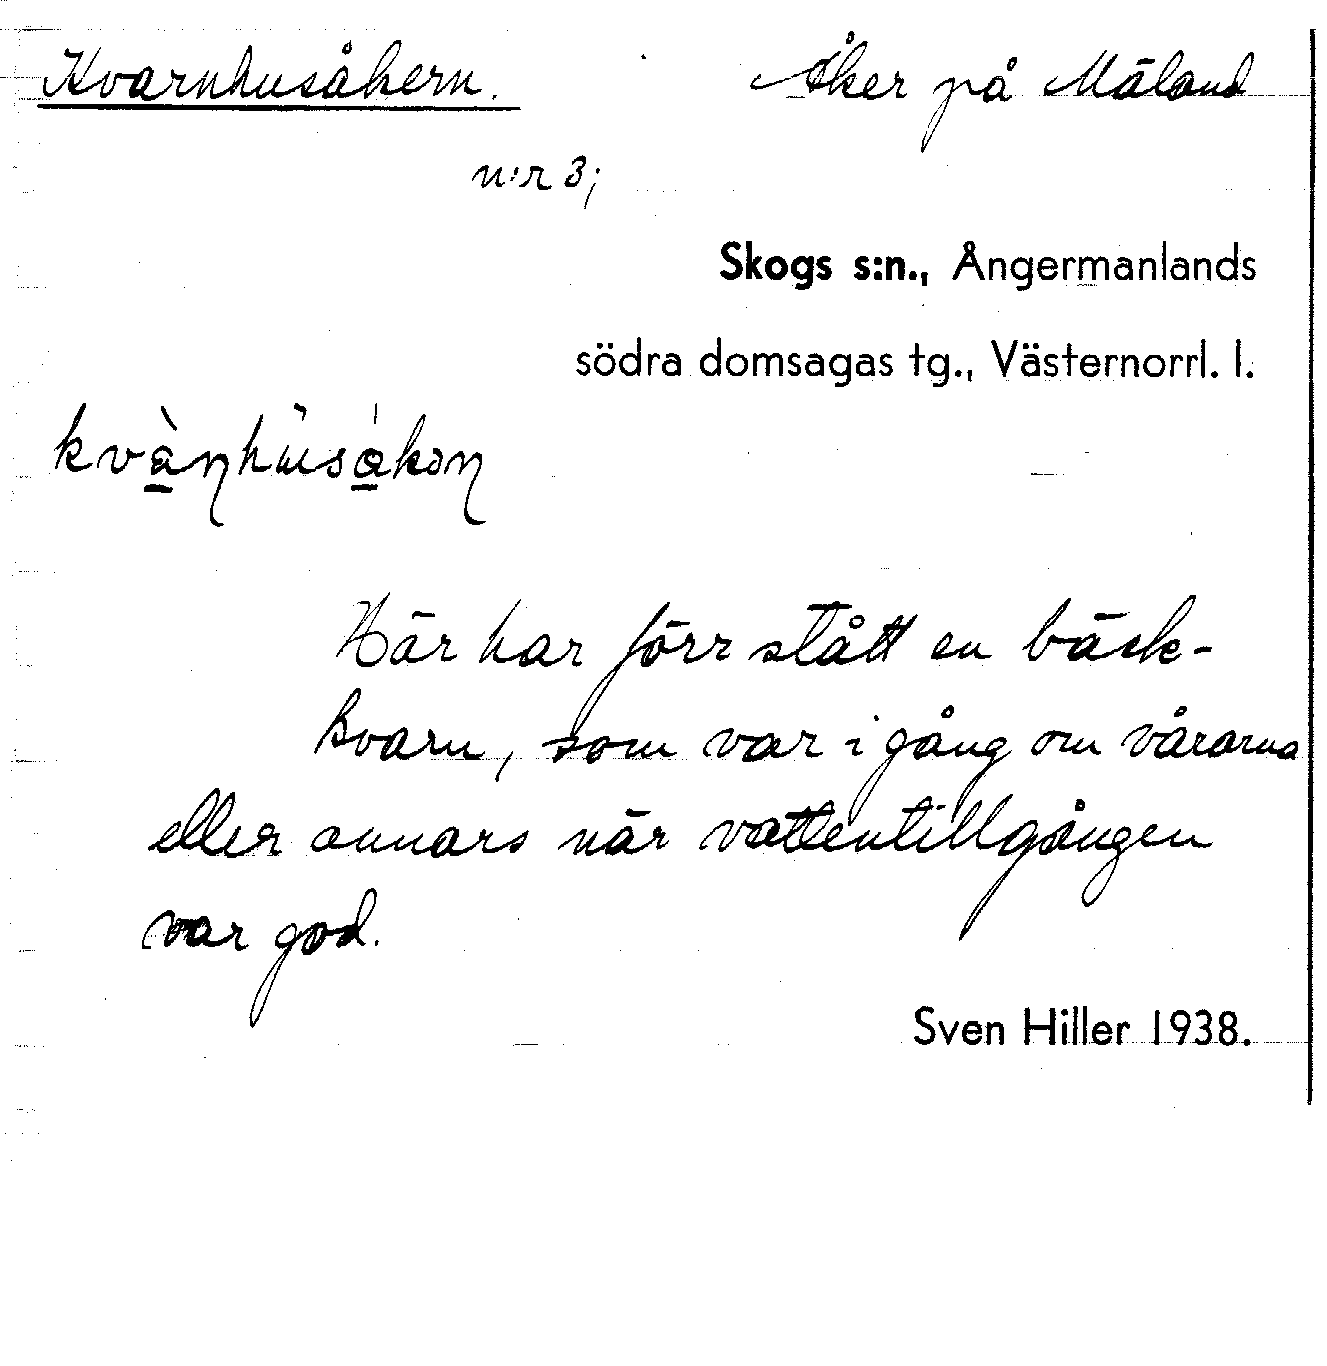 Kvarnhusåkern. Åker på Mäland
n:r 3;
Skogs s:n., Ångermanlands
södra domsagas tg., Västernorrl. l.
Här har förr stått en bäck-
kvarn, som var i gång om vårarna
eller annars när vattentillgången
var god.
Sven Hiller 1938.